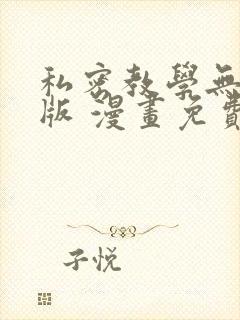 私密教學無
版 漫畫免費
子悦